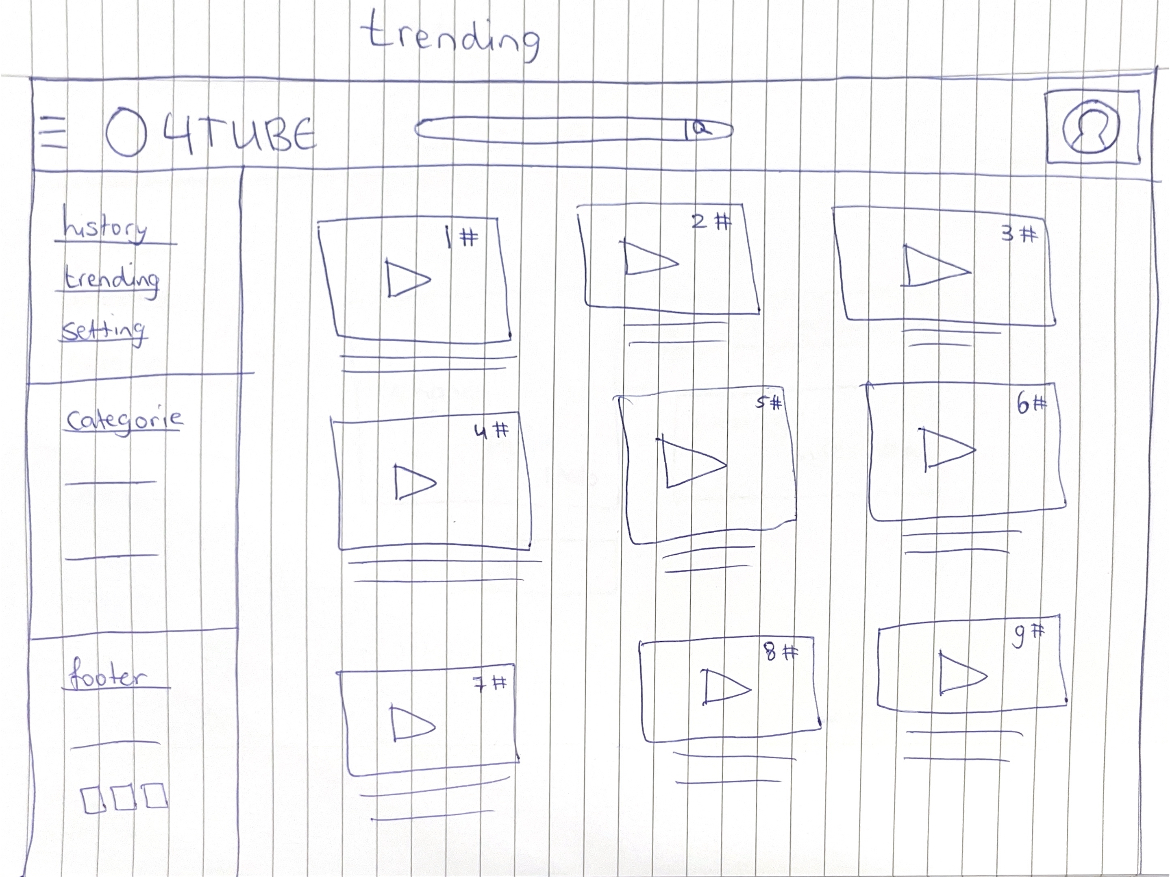 trending
4TUBE
history
trending
setting
categorie
footer
1#
2#
3#
4#
5#
6#
7#
8#
9#